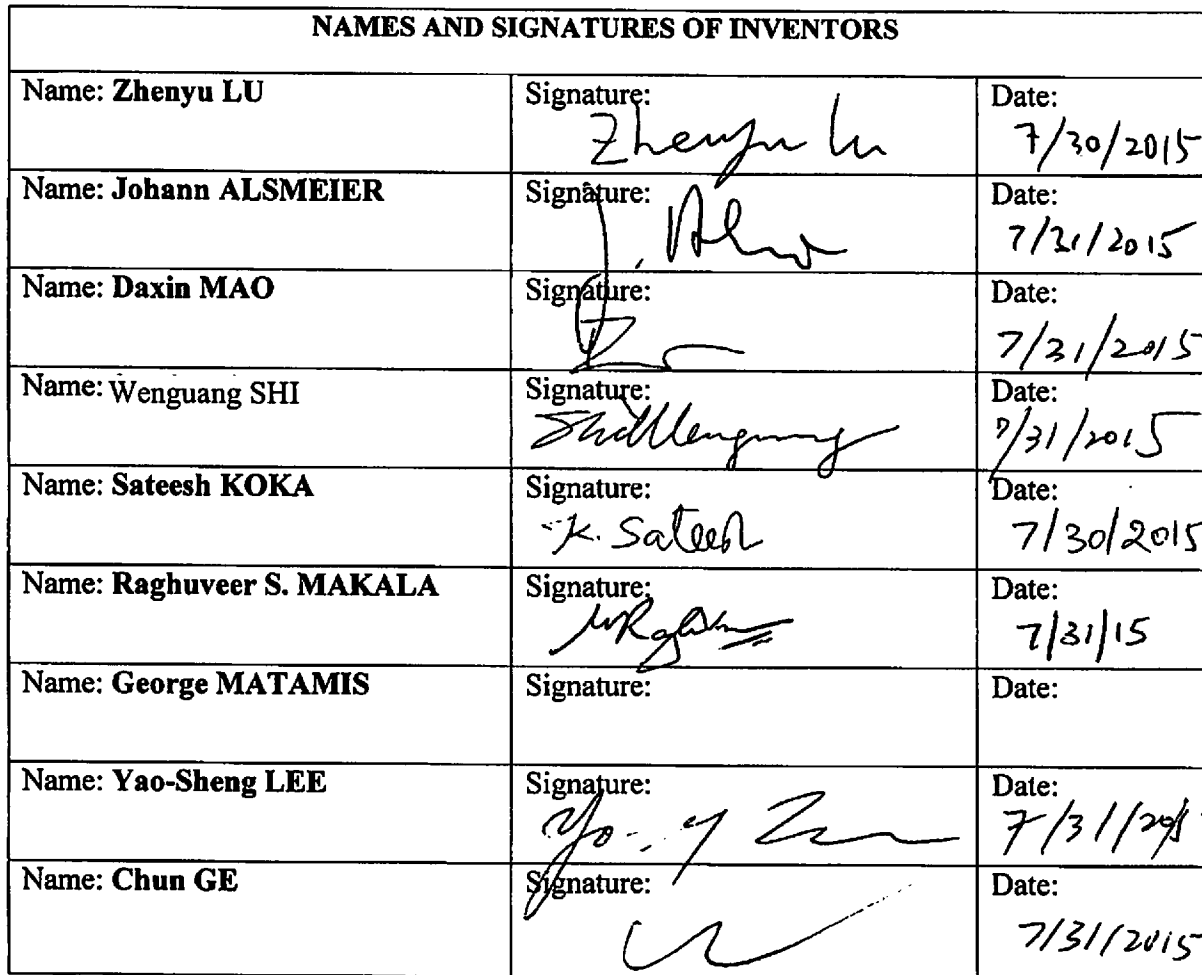 NAMES AND SIGNATURES OF INVENTORS
Name: Zhenyu LU
Signature:
Zhenyu Lu
Date:
7/30/2015
Name: Johann ALSMEIER
Signature:
Date:
7/31/2015
Name: Daxin MAO
Signature:
Date:
7/31/2015
Name: Wenguang SHI
Signature:
Shi Wenguang
Date:
7/31/2015
Name: Sateesh KOKA
Signature:
K. Sateesh
Date:
7/30/2015
Name: Raghuveer S. MAKALA
Signature:
Date:
7/31/15
Name: George MATAMIS
Signature:
Date:
Name: Yao-Sheng LEE
Signature:
Date:
7/31/2015
Name: Chun GE
Signature:
Date:
7/31/2015